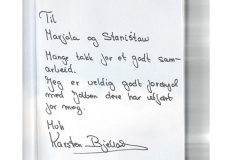 Til
Marjola og Stanisław
Mange takk for et godt sam-
arbeid.
Jeg er veldig godt fornøyd
med Jobben dere har utført
for meg.
Mvh
Karsten